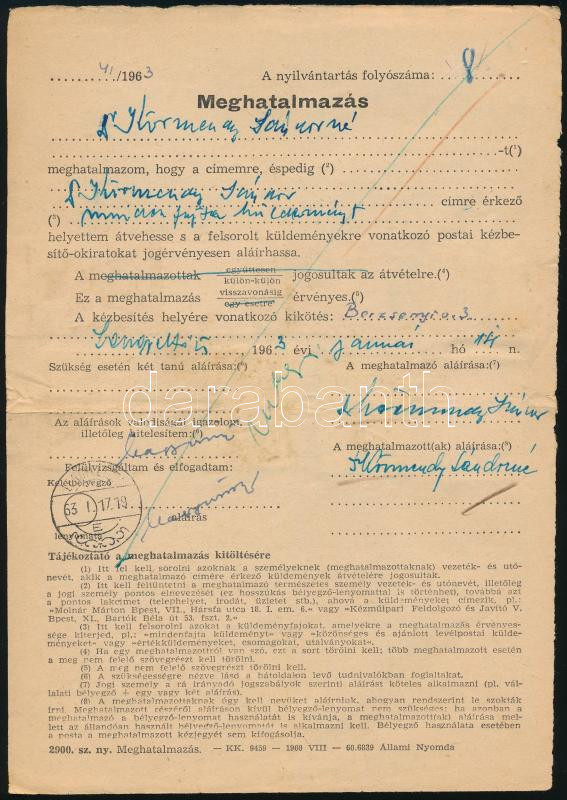 41/1963 A nyilvántartás folyószáma: 8
Meghatalmazás
Dr Körmendy Sándorné
-t(¹)
meghatalmazom, hogy a címemre, éspedig (²)
Dr Körmendy Sándor címre érkező
(³) mindenfajta küldeményt
helyettem átvehesse s a felsorolt küldeményekre vonatkozó postai kézbe-
sítő-okiratokat jogérvényesen aláírhassa.
A meghatalmazottak együttesen külön-külön jogosultak az átvételre.(⁴)
Ez a meghatalmazás visszavonásig egy esetre érvényes.(⁵)
A kézbesítés helyére vonatkozó kikötés: Berzsenyi u. 3
1963 évi január hó 14 n.
Szükség esetén két tanú aláírása:(⁶) A meghatalmazó aláírása:(⁷)
darabanth
Körmendy Sándor
Az aláírások valódiságát igazolom,
illetőleg hitelesítem:(⁶)
A meghatalmazott(ak) aláírása:(⁸)
Felülvizsgáltam és elfogadtam: Körmendy Sándorné
Keletbélyegző
63 I. 17. 19
aláírás
lenyomata
Tájékoztató a meghatalmazás kitöltésére
(1) Itt fel kell sorolni azoknak a személyeknek (meghatalmazottaknak) vezeték- és utó-
nevét, akik a meghatalmazó címére érkező küldemények átvételére jogosultak.
(2) Itt kell feltüntetni a meghatalmazó természetes személy vezeték- és utónevét, illetőleg
a jogi személy pontos elnevezését (ez hosszúkás bélyegző-lenyomattal is történhet), továbbá azt
a pontos lakcímet (telephelyet, irodát, üzletet stb.), ahová a küldeményeket címezik, pl.:
»Molnár Márton Bpest, VII., Hársfa utca 18. I. em. 6.« vagy »Kézműipari Feldolgozó és Javító V.
Bpest, XI., Bartók Béla út 53. fszt. 2.«
(3) Itt kell felsorolni azokat a küldeményfajokat, amelyekre a meghatalmazás érvényes-
sége kiterjed, pl.: »mindenfajta küldeményt« vagy »közönséges és ajánlott levélpostai külde-
ményeket« vagy »értékküldeményeket, csomagokat, utalványokat«.
(4) Ha egy meghatalmazottról van szó, ezt a sort törölni kell; több meghatalmazott esetén
a meg nem felelő szövegrészt kell törölni.
(5) A meg nem felelő szövegrészt törölni kell.
(6) A szükségességre nézve lásd a hátoldalon levő tudnivalókban foglaltakat.
(7) Jogi személy a rá irányadó jogszabályok szerinti aláírást köteles alkalmazni (pl. vál-
lalati bélyegző + egy vagy két aláírás).
(8) A meghatalmazottaknak úgy kell nevüket aláírniuk, ahogyan rendszerint le szokták
írni. Meghatalmazott cézéről aláíráson kívül bélyegző-lenyomat nem szükséges; ha azonban a
meghatalmazó a bélyegző-lenyomat használatát is kívánja, a meghatalmazott(ak) aláírása mel-
lett az állandóan használt bélyegző-lenyomatát is alkalmazni kell. Bélyegző használata esetében
a posta a meghatalmazott kézjegyét sem kifogásolja.
2900. sz. ny. Meghatalmazás. — KK. 9459 — 1960 VIII — 60.6839 Állami Nyomda